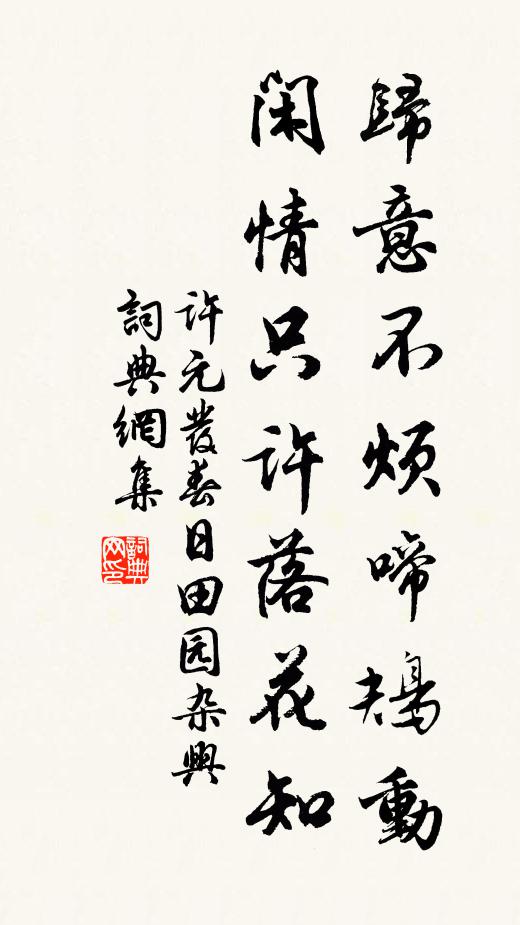 歸意不煩啼鴂動
閑情只許落花知
许元發春日田园杂興
詞典網集
詞典網印